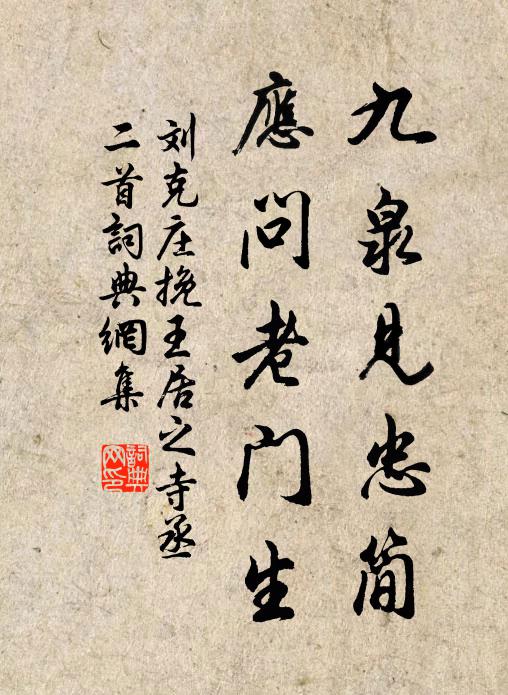 九泉見忠简
應問老门生
刘克庄挽王居之寺丞
二首詞典網集
詞典网印